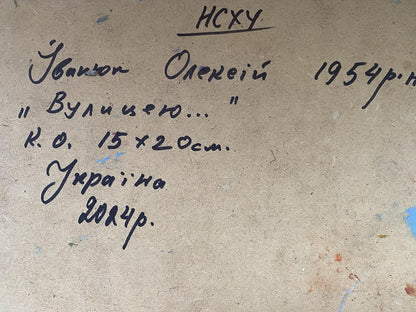 НСХУ
Іванюк Олексій 1954р.н
„Вулицею..."
к. о. 15×20см.
Україна
2024р.